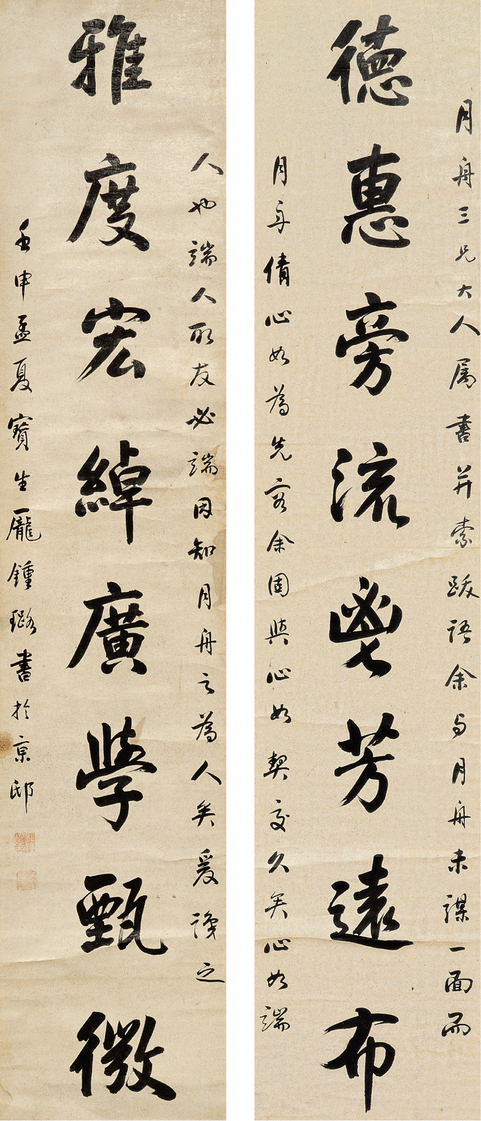 月舟三兄大人属書并索跋語余与月舟未謀一面而
徳惠旁流鬯芳遠布
月舟倩心如為先容余固與心如契交久矣心如端
人也端人取友必端因知月舟之為人矣爰識之
雅度宏綽廣學甄微
壬申孟夏寶生龐鍾璐書於京邸